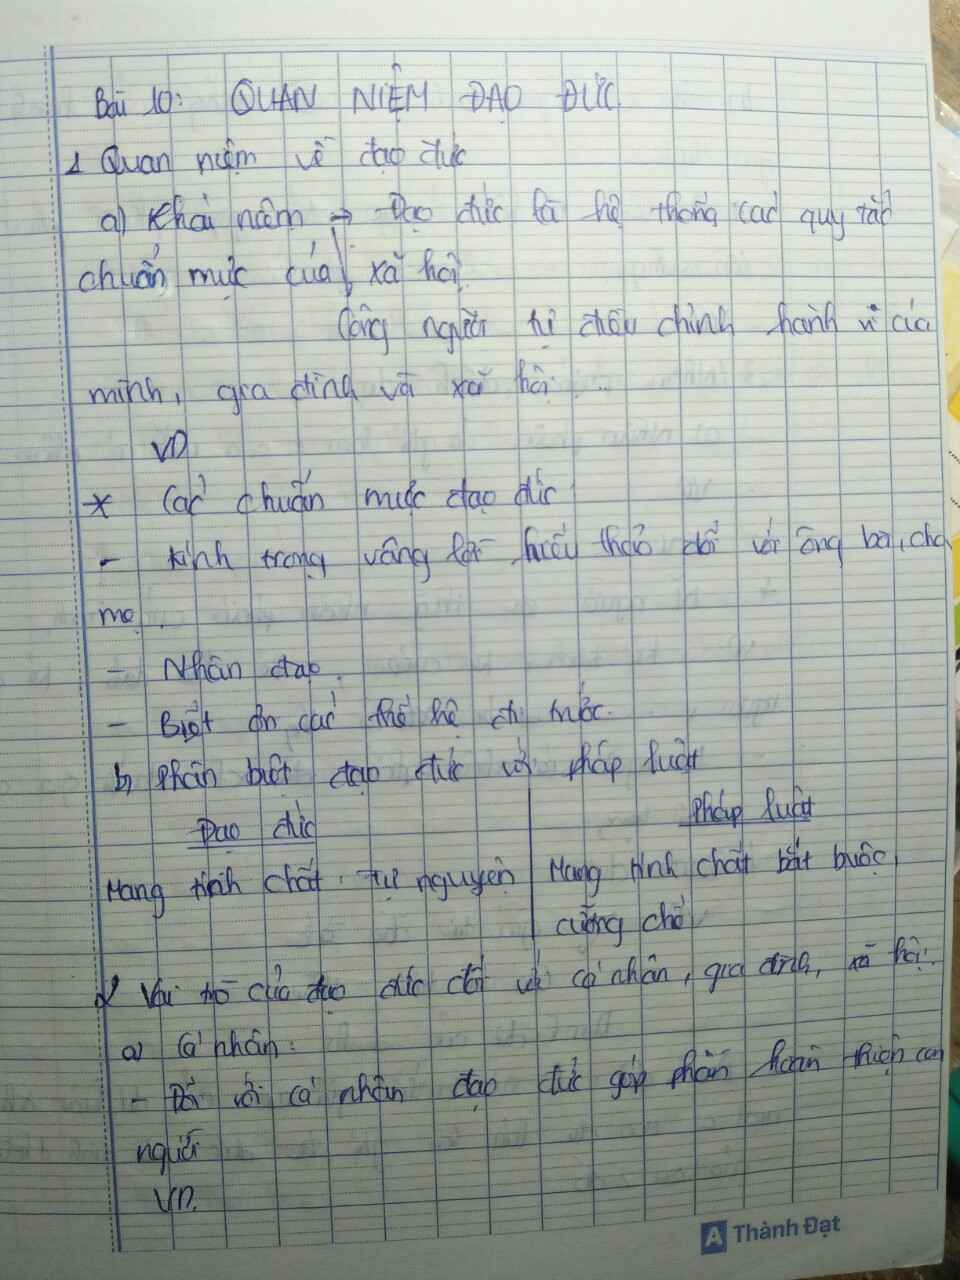 Bài 10: QUAN NIỆM ĐẠO ĐỨC
1 Quan niệm về đạo đức
a) Khái niệm → Đạo đức là hệ thống các quy tắc
chuẩn mực của xã hội.
Cộng người tự điều chỉnh hành vi của
mình, gia đình và xã hội.
VD
* Các chuẩn mực đạo đức
- kính trọng vâng lời hiếu thảo đối với ông bà, cha
mẹ.
- Nhân đạo.
- Biết ơn các thế hệ đi trước.
b) Phân biệt đạo đức với pháp luật
Đạo đức
Pháp luật
Mang tính chất tự nguyện
Mang tính chất bắt buộc
cưỡng chế
2/ Vai trò của đạo đức đối với cá nhân, gia đình, xã hội.
a) Cá nhân:
- Đối với cá nhân đạo đức góp phần hoàn thiện con
người
VD.
A Thành Đạt